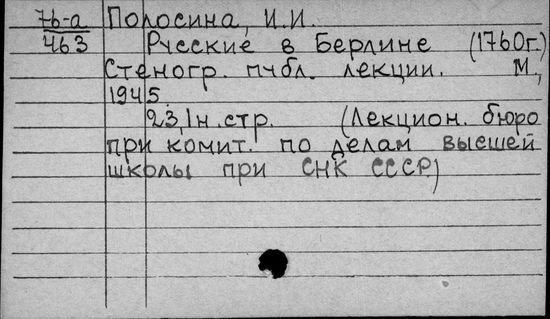 76-а Полосина, И.И.
463 Русские в Берлине (1760г.)
Стеногр. публ. лекции. М.,
1945.
23,1н.стр. (Лекцион. бюро
при комит. по делам высшей
школы при СНК СССР)